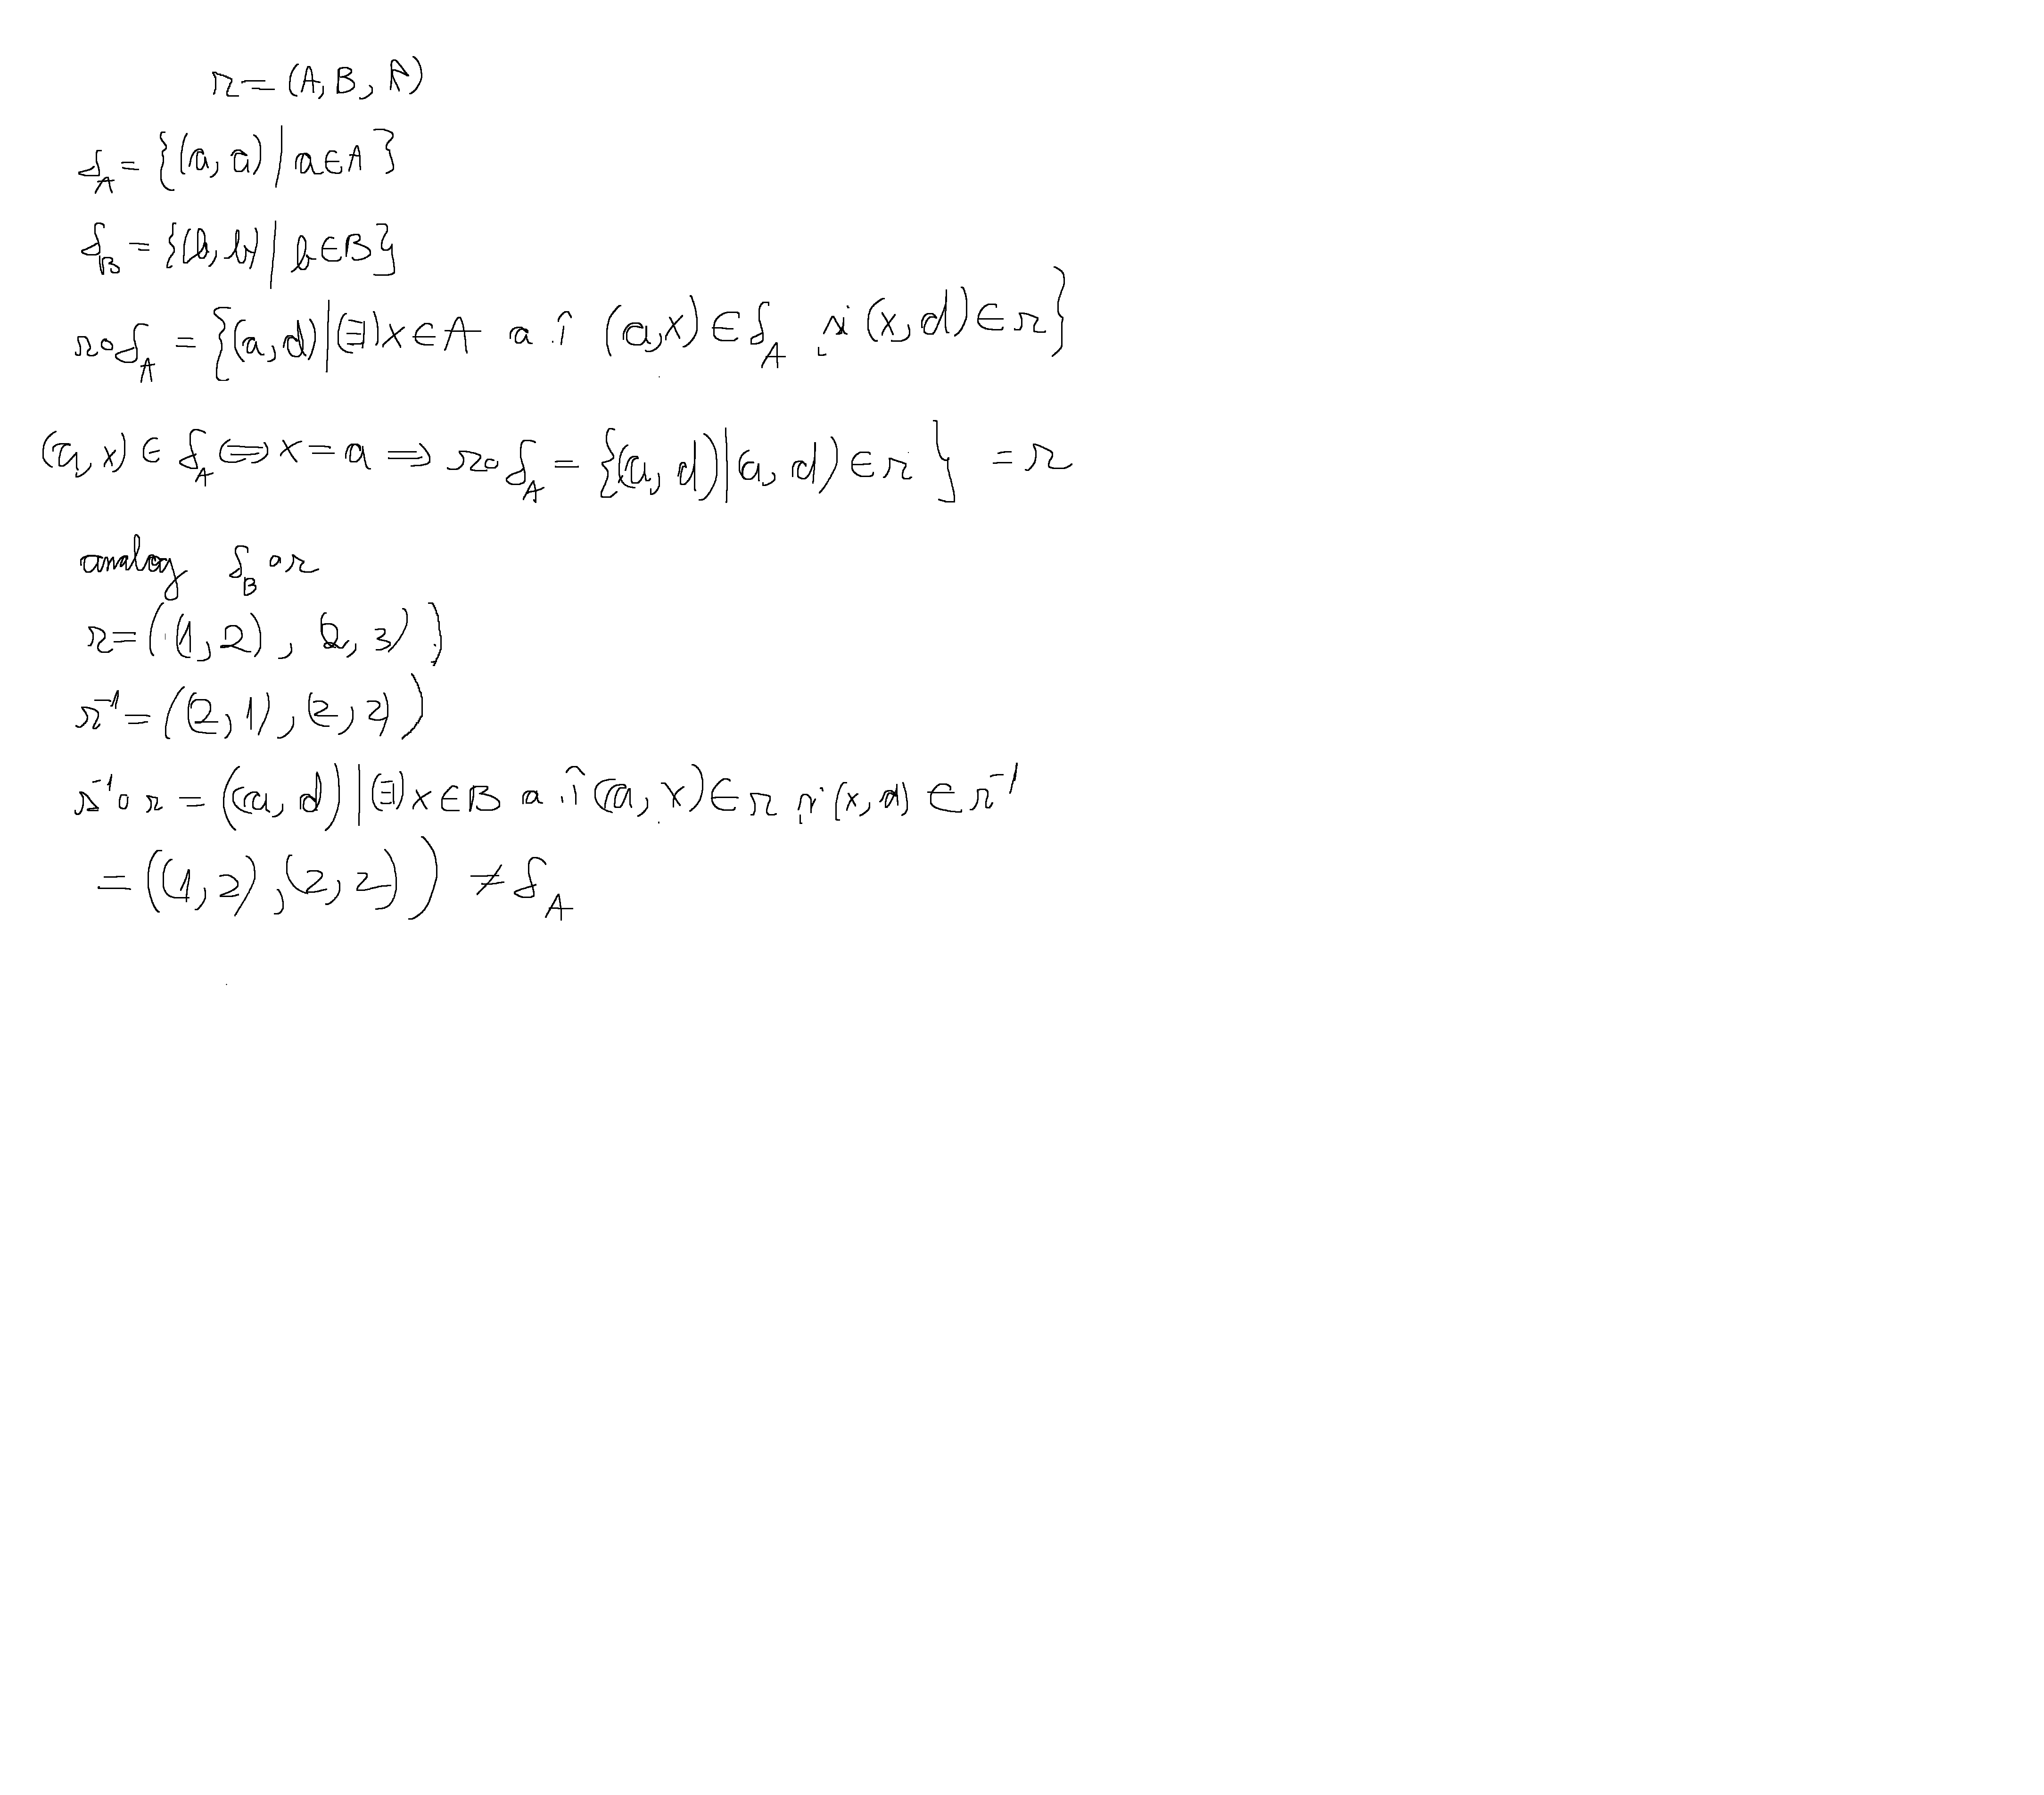 r=(A,B,R)
δ_A={(a,a)|a∈A}
δ_B={(b,b)|b∈B}
r∘δ_A={(a,d)|(∃)x∈A a.î (a,x)∈δ_A și (x,d)∈r}
(a,x)∈δ_A⇔x=a⇒r∘δ_A={(a,d)|(a,d)∈r}=r
analog δ_B∘r
r=((1,2),(2,3))
r⁻¹=((2,1),(2,2))
r⁻¹∘r=((a,d)|(∃)x∈B a.î (a,x)∈r și (x,d)∈r⁻¹
=((1,2),(2,2))≠δ_A